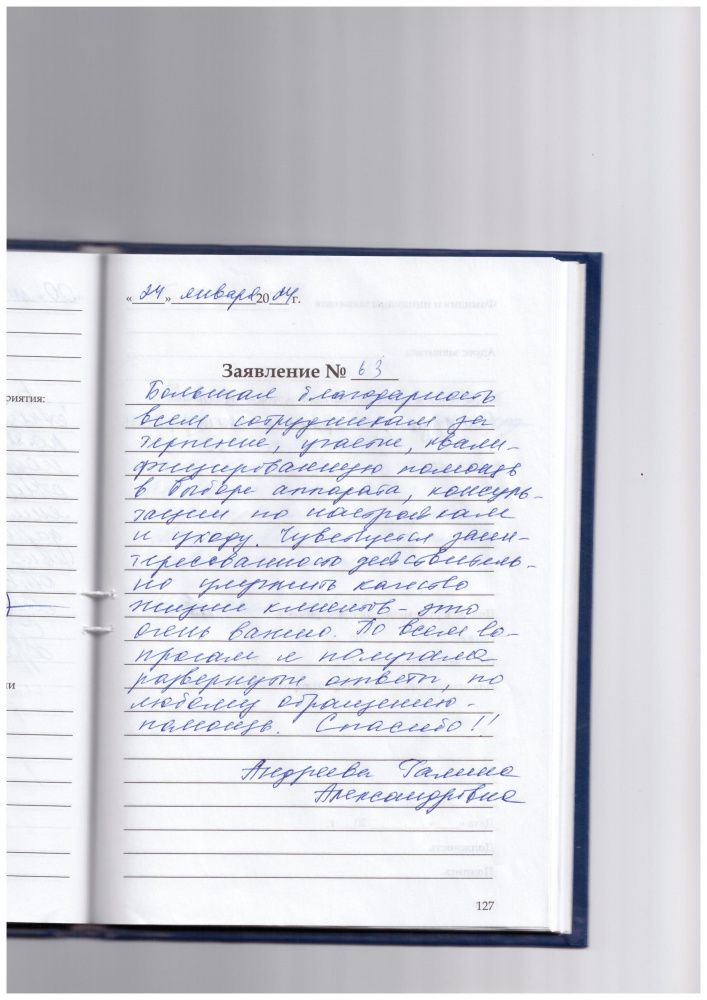 « 24 » января 20 24 г.
Заявление № 63
Большая благодарность
всем сотрудникам за
терпение, участие, квали-
фицированную помощь
в выборе аппарата, консуль-
тации по настройкам
и уходу. Чувствуется заин-
тересованность действитель-
но улучшить качество
жизни клиентов - это
очень важно. По всем во-
просам я получала
развернутые ответы, по
любому обращению -
помощь. Спасибо!!
Андреева Галина
Александровна
127
риятия:
ии